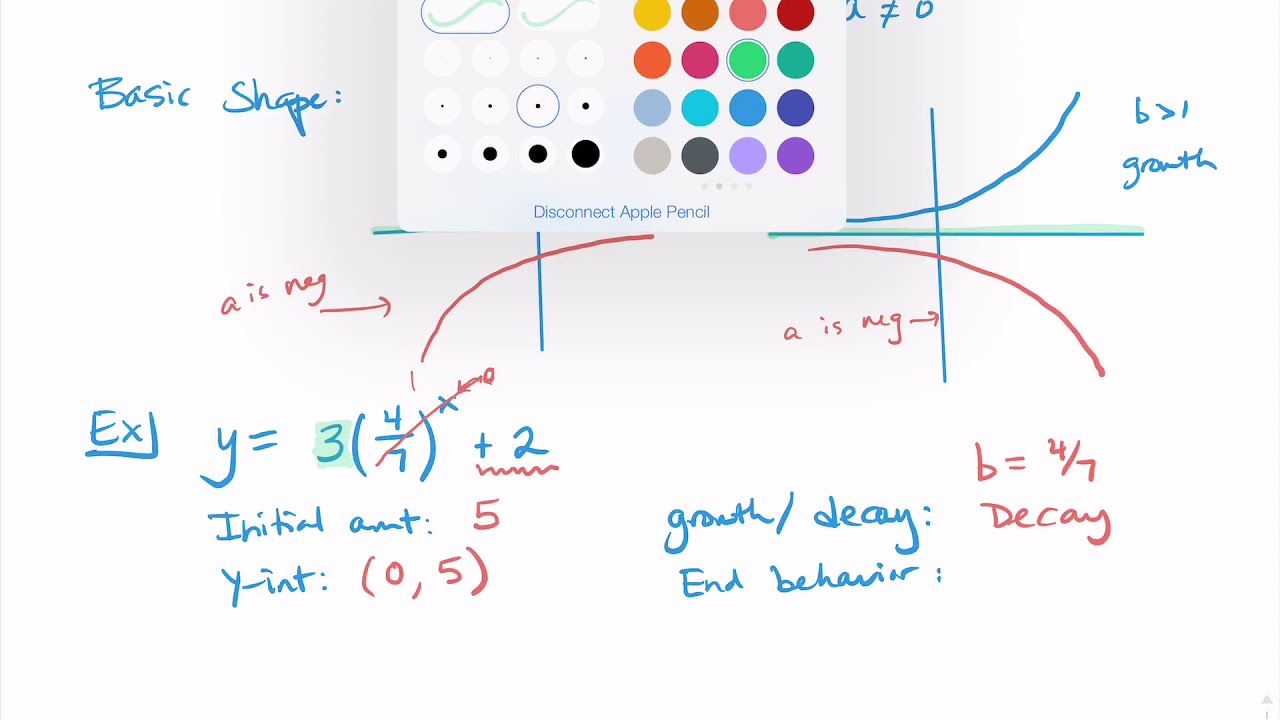 a ≠ 0
Basic Shape:
b>1
growth
Disconnect Apple Pencil
a is neg
a is neg
1
0
Ex
y = 3(4/7)^x + 2
b = 4/7
Initial amt: 5
growth/decay: Decay
y-int: (0, 5)
End behavior: